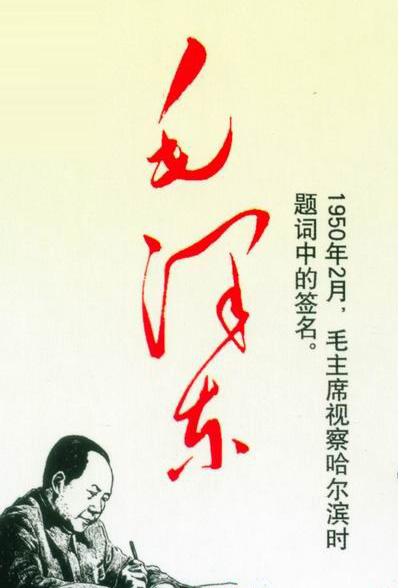 1950年2月，毛主席视察哈尔滨时
题词中的签名。
毛泽东